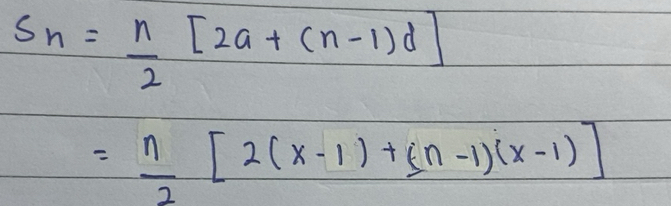 Sn = n/2 [2a + (n-1)d]
= n/2 [2(x-1) + (n-1)(x-1)]